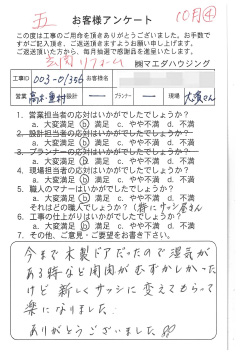 五 お客様アンケート 10月④
この度は工事のご用命を頂きありがとうございました。お手数で
すがご記入頂き、ご返送頂きますようお願い申し上げます。
ご返送頂いた方から、毎月抽選で感謝品を進呈いたします。
玄関リフォーム ㈱マエダハウジング
工事ID 003-01356 お客様名
営業 設計 ー プランナー ー 現場
1. 営業担当者の応対はいかがでしたでしょうか?
a. 大変満足 b. 満足 c. やや不満 d. 不満
2. 設計担当者の応対はいかがでしたでしょうか?
a. 大変満足 b. 満足 c. やや不満 d. 不満
3. プランナーの応対はいかがでしたでしょうか?
a. 大変満足 b. 満足 c. やや不満 d. 不満
4. 現場担当者の応対はいかがでしたでしょうか?
a. 大変満足 b. 満足 c. やや不満 d. 不満
5. 職人のマナーはいかがでしたでしょうか?
a. 大変満足 b. 満足 c. やや不満 d. 不満
それはどの職人でしょうか? (特にサッシ屋さん)
6. 工事の仕上がりはいかがでしたでしょうか?
a. 大変満足 b. 満足 c. やや不満 d. 不満
7. その他、ご意見・ご要望をお書き下さい。
今まで木製ドアだったので湿気が
ある時など開閉がむずかしかった
けど 新しくサッシに変えてもらって
楽になりました
ありがとうございました